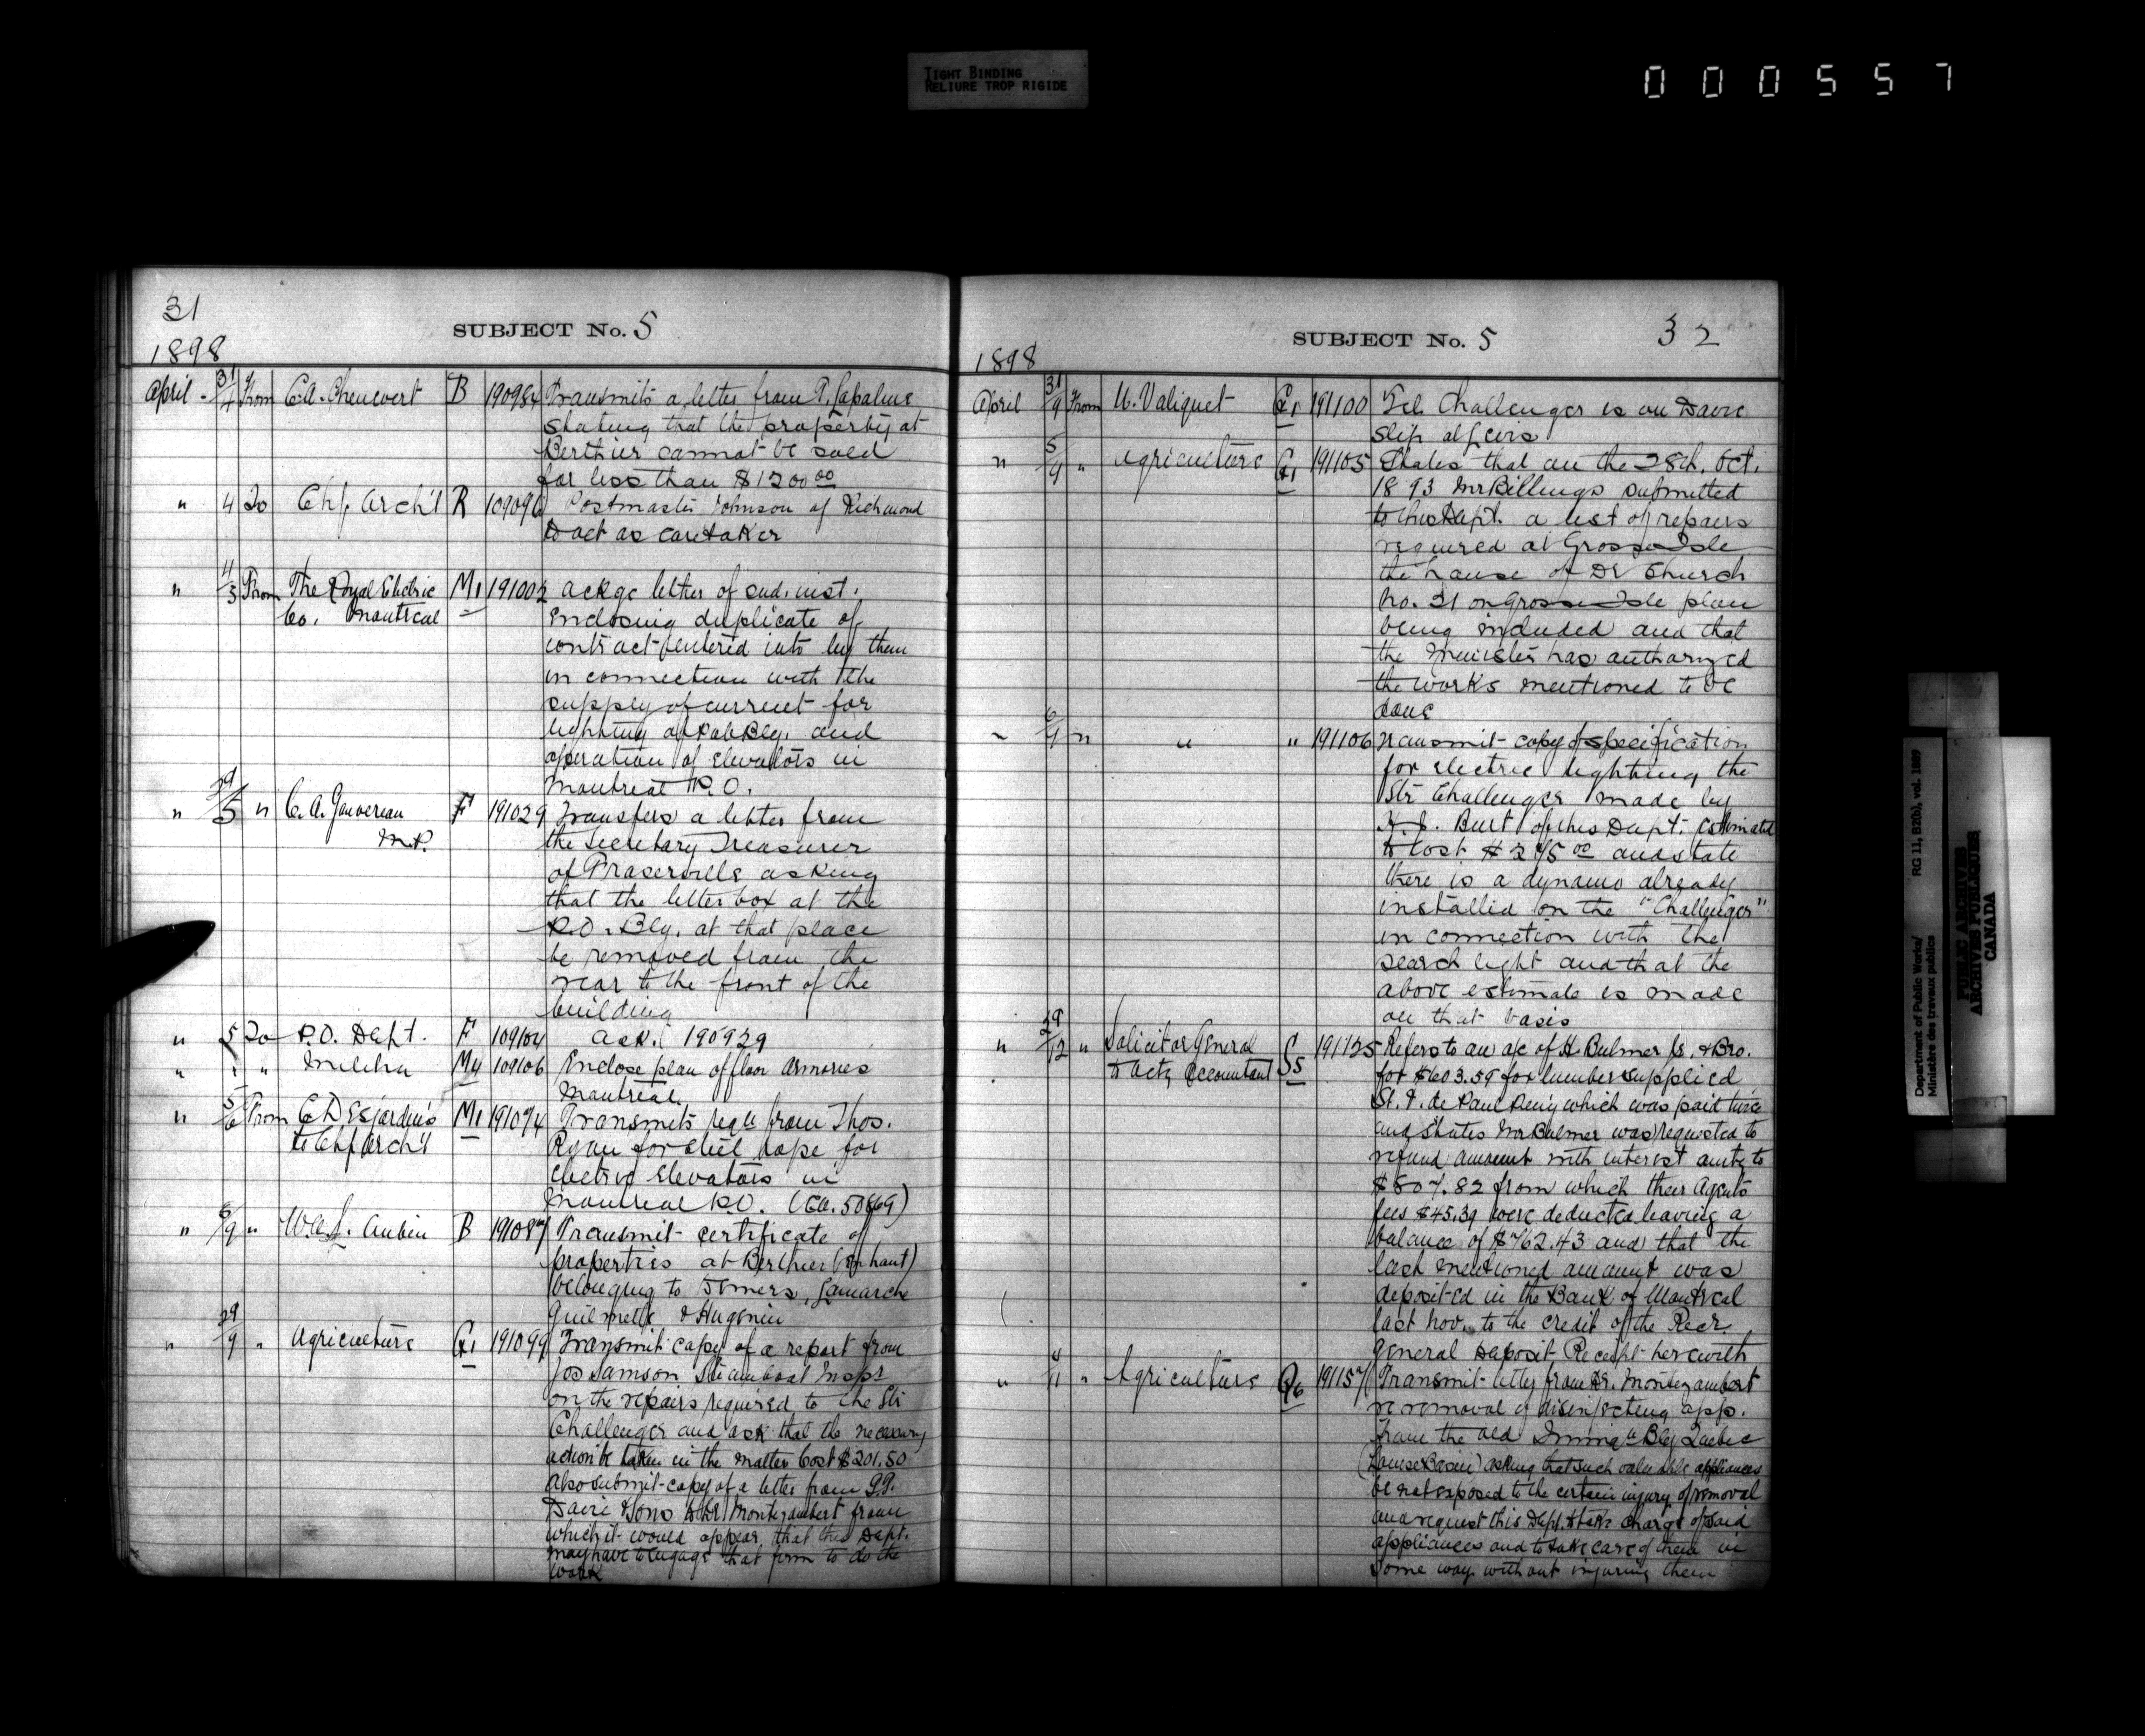 TIGHT BINDING
RELIURE TROP RIGIDE
000557
31
SUBJECT No. 5
1898
April - 31/4 From C.A. Chenevert B 190984 Transmits a letter from P.
stating that the property at
Berthier cannot be sold
for less than $1200 00
" 4 To Chf. Arch't R 109096 Postmaster Johnson of Richmond
to act as caretaker
" 4/5 From The Royal Electric M1 191002 ackge letter of 2nd. inst.
Co. Montreal enclosing duplicate of
contract entered into by them
in connection with the
supply of current for
lighting of Pub Bldg. and
operation of elevators in
Montreal P.O.
" 29/5 " C.A. Gauvereau F 191029 Transfers a letter from
M.P. the Secretary Treasurer
of Fraserville asking
that the letter box at the
P.O. Blg. at that place
be removed from the
rear to the front of the
building
" 5 To P.O. Dept. F 109104 ack. 190929
" " " Militia M4 109106 Enclose plan of floor Armories
Montreal.
" 5/6 From C. Desjardins M1 191074 Transmits reqn from Thos.
to Chf Arch't Ryan for steel rope for
electric elevators in
Montreal P.O. (Ca. 50869)
" 8/9 " Aubin B 191087 Transmit certificate of
properties at Berthier (en haut)
belonging to Lamarche
Guilmette & Hugenin
" 29/9 " Agriculture G1 191099 Transmit copy of a report from
Jos Samson Steamboat Inspr
on the repairs required to the Str
Challenger and ask that the necessary
action be taken in the matter Cost $201.50
Also submit copy of a letter from
Davie & Sons to Dr Montizambert from
which it would appear that this Dept.
may have to engage that firm to do the
work
SUBJECT No. 5 32
1898
April 31/9 From U. Valiquet G1 191100 Tel. Challenger is on Davie
slip at Levis
" 5/9 " Agriculture G1 191105 States that on the 28th. Oct.
1893 Mr Billings submitted
to this Dept. a list of repairs
required at Grosse Isle
the house of Dr Church
No. 21 on Grosse Isle plan
being included and that
the Minister has authorized
the works mentioned to be
done
" 6/9 " " " 191106 Transmit copy of specification
for electric lighting the
Str Challenger made by
Burt of this Dept. estimated
to cost $275 00 and state
there is a dynamo already
installed on the "Challenger"
in connection with the
search light and that the
above estimate is made
on that basis
" 29/12 " Solicitor General S5 191125 Refers to an a/c of H. Bulmer Jr. & Bro.
to Actg Accountant for $603.59 for lumber supplied
St. V. de Paul Peny which was paid twice
and states Mr Bulmer was requested to
refund amount with interest amtg to
$807.82 from which their Agents
fees $45.39 were deducted leaving a
balance of $762.43 and that the
last mentioned amount was
deposited in the Bank of Montreal
last Nov. to the credit of the Recr.
General Deposit Receipt herewith
" 4/11 " Agriculture Q6 191157 Transmit letter from Dr. Montizambert
re removal of disinfecting app.
from the old Immign Blg Quebec
(Louise Basin) asking that such valuable appliances
be not exposed to the certain injury of removal
and request this Dept. to take charge of said
appliances and to take care of them in
some way without injuring them
Department of Public Works/ RG 11, B2(b), vol. 1889
Ministère des travaux publics
PUBLIC ARCHIVES
ARCHIVES PUBLIQUES
CANADA